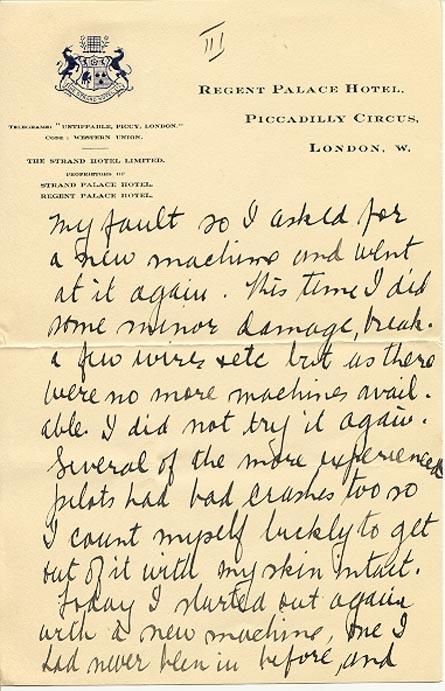 III
REGENT PALACE HOTEL,
PICCADILLY CIRCUS,
LONDON, W.
TELEGRAMS: "UNTIPPABLE, PICCY, LONDON."
CODE: WESTERN UNION.
THE STRAND HOTEL LIMITED.
PROPRIETORS OF
STRAND PALACE HOTEL.
REGENT PALACE HOTEL.
my fault so I asked for
a new machine and went
at it again. This time I did
some minor damage, break-
a few wires etc but as there
were no more machines avail-
able I did not try it again.
Several of the more experienced
pilots had bad crashes too so
I count myself luckly to get
out of it with my skin intact.
Today I started out again
with a new machine, one I
had never been in before, and